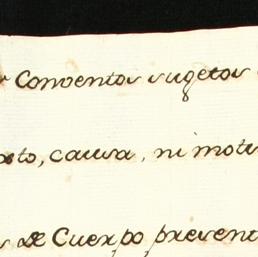 Conventos sugetos
xto, causa, ni moti
s de Cuerpo prevent